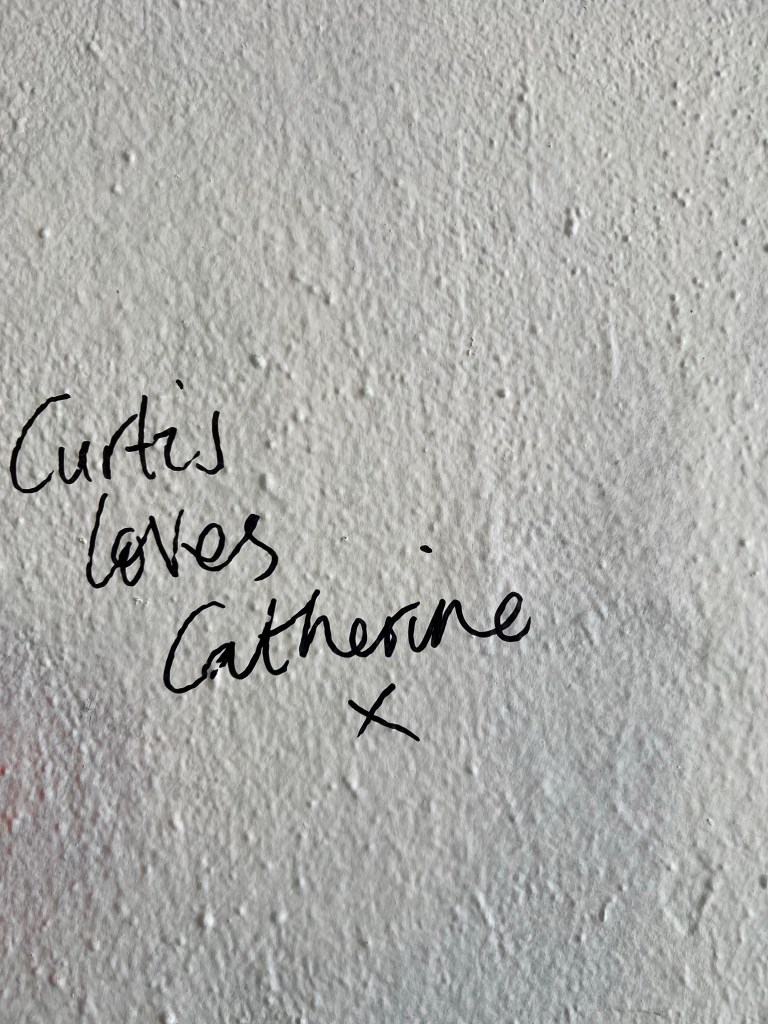 Curtis
loves
Catherine
x